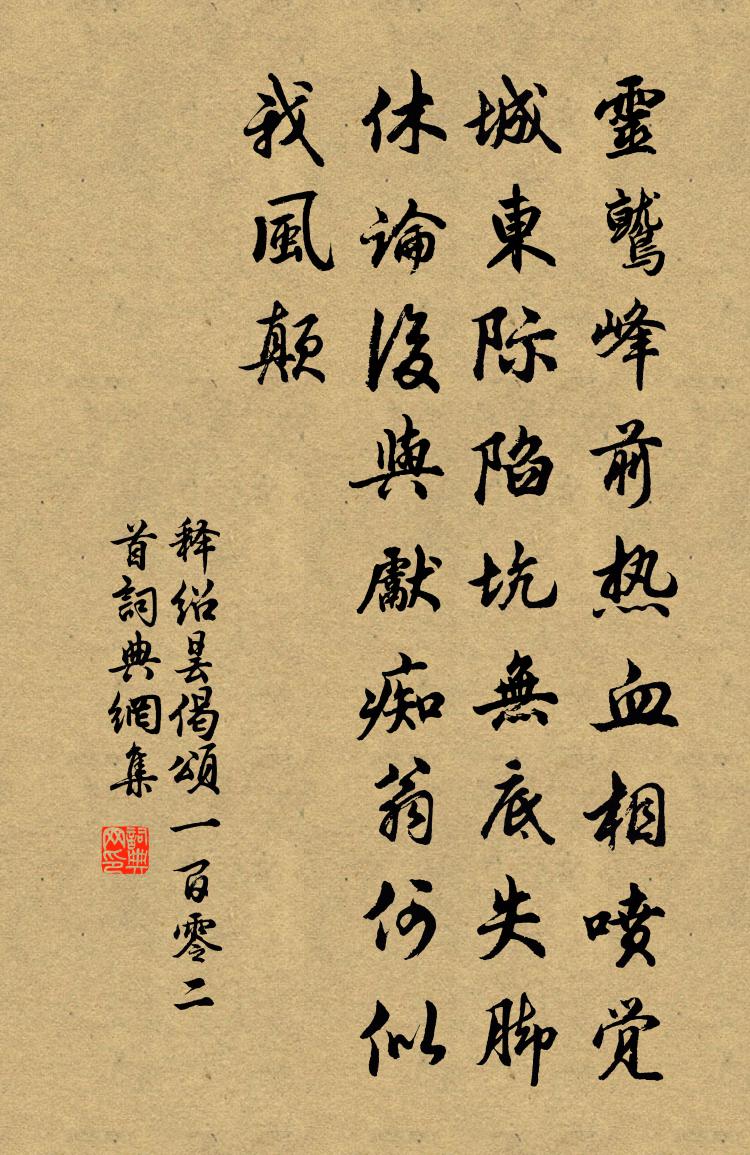 靈鷲峰前热血相喷觉
城東际陷坑無底失脚
休論後與獻痴翁何似
我風颠
释绍昙偈頌一百零二
首詞典網集
詞典网印